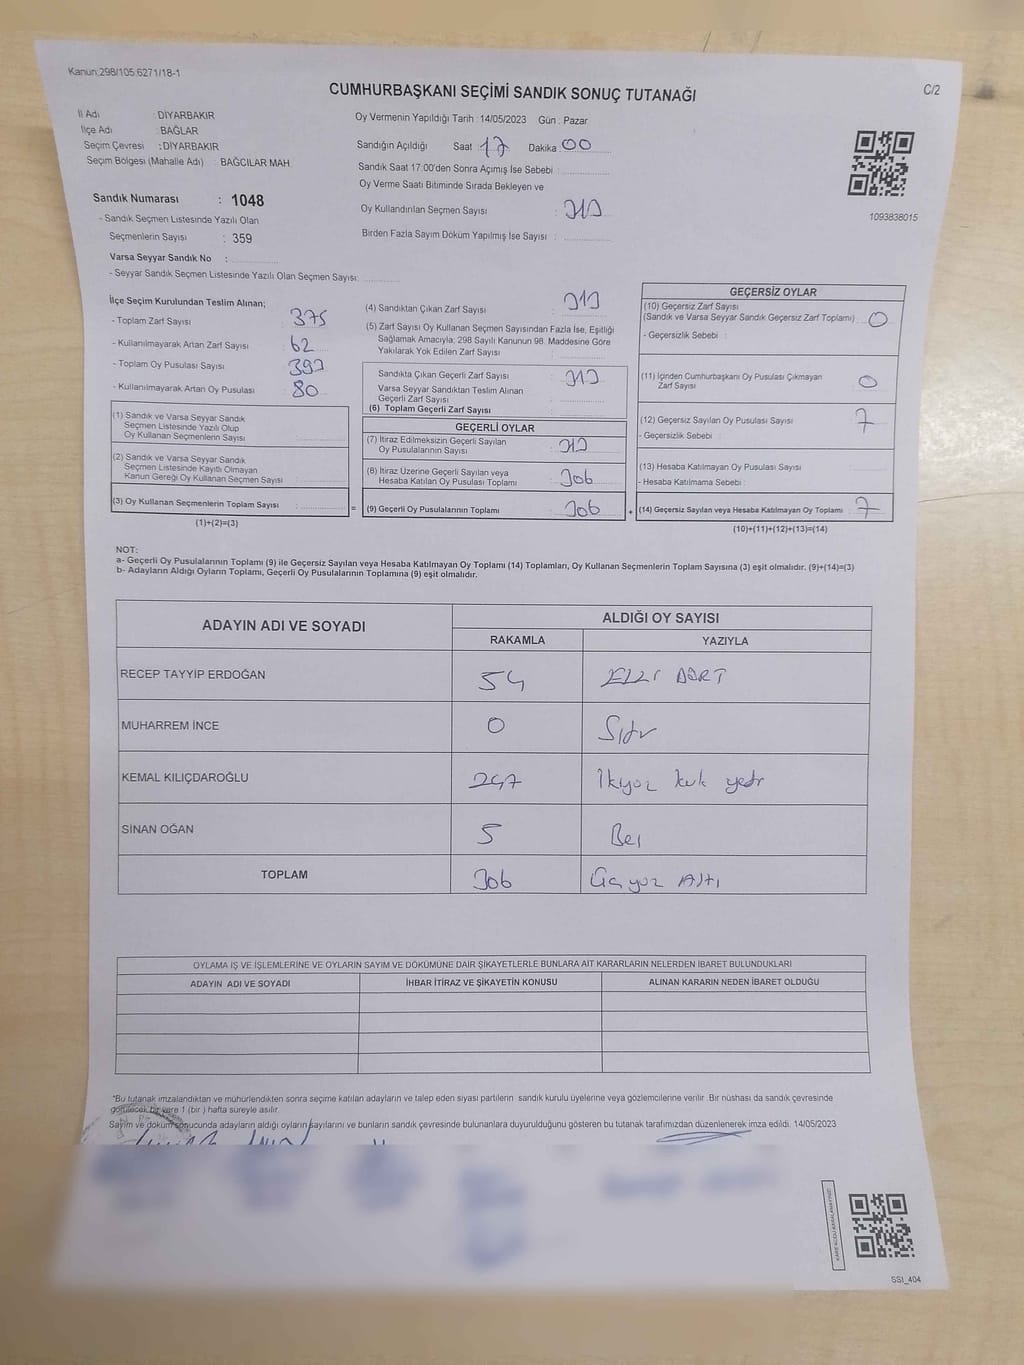 Kanun:298/105:6271/18-1
C/2
CUMHURBAŞKANI SEÇİMİ SANDIK SONUÇ TUTANAĞI
İl Adı : DİYARBAKIR
İlçe Adı : BAĞLAR
Seçim Çevresi : DİYARBAKIR
Seçim Bölgesi (Mahalle Adı) : BAĞCILAR MAH.
Sandık Numarası : 1048
- Sandık Seçmen Listesinde Yazılı Olan
Seçmenlerin Sayısı : 359
Varsa Seyyar Sandık No :
- Seyyar Sandık Seçmen Listesinde Yazılı Olan Seçmen Sayısı:
Oy Vermenin Yapıldığı Tarih : 14/05/2023 Gün : Pazar
Sandığın Açıldığı Saat 17 Dakika 00
Sandık Saat 17.00'den Sonra Açımış İse Sebebi
Oy Verme Saati Bitiminde Sırada Bekleyen ve
Oy Kullandırılan Seçmen Sayısı : 313
Birden Fazla Sayım Döküm Yapılmış İse Sayısı :
1093838015
İlçe Seçim Kurulundan Teslim Alınan;
- Toplam Zarf Sayısı 375
- Kullanılmayarak Artan Zarf Sayısı 62
- Toplam Oy Pusulası Sayısı 393
- Kullanılmayarak Artan Oy Pusulası 80
(1) Sandık ve Varsa Seyyar Sandık
Seçmen Listesinde Yazılı Olup
Oy Kullanan Seçmenlerin Sayısı
(2) Sandık ve Varsa Seyyar Sandık
Seçmen Listesinde Kayıtlı Olmayan
Kanun Gereği Oy Kullanan Seçmen Sayısı
(3) Oy Kullanan Seçmenlerin Toplam Sayısı :
(1)+(2)=(3)
=
(4) Sandıktan Çıkan Zarf Sayısı : 313
(5) Zarf Sayısı Oy Kullanan Seçmen Sayısından Fazla İse, Eşitliği
Sağlamak Amacıyla; 298 Sayılı Kanunun 98. Maddesine Göre
Yakılarak Yok Edilen Zarf Sayısı
Sandıkta Çıkan Geçerli Zarf Sayısı : 313
Varsa Seyyar Sandıktan Teslim Alınan
Geçerli Zarf Sayısı
(6) Toplam Geçerli Zarf Sayısı
GEÇERLİ OYLAR
(7) İtiraz Edilmeksizin Geçerli Sayılan
Oy Pusulalarının Sayısı 313
(8) İtiraz Üzerine Geçerli Sayılan veya
Hesaba Katılan Oy Pusulası Toplamı 306
(9) Geçerli Oy Pusulalarının Toplamı 306
+
GEÇERSİZ OYLAR
(10) Geçersiz Zarf Sayısı
(Sandık ve Varsa Seyyar Sandık Geçersiz Zarf Toplamı) 0
- Geçersizlik Sebebi :
(11) İçinden Cumhurbaşkanı Oy Pusulası Çıkmayan
Zarf Sayısı 0
(12) Geçersiz Sayılan Oy Pusulası Sayısı 7
- Geçersizlik Sebebi :
(13) Hesaba Katılmayan Oy Pusulası Sayısı
- Hesaba Katılmama Sebebi :
(14) Geçersiz Sayılan veya Hesaba Katılmayan Oy Toplamı 7
(10)+(11)+(12)+(13)=(14)
NOT:
a- Geçerli Oy Pusulalarının Toplamı (9) ile Geçersiz Sayılan veya Hesaba Katılmayan Oy Toplamı (14) Toplamları, Oy Kullanan Seçmenlerin Toplam Sayısına (3) eşit olmalıdır. (9)+(14)=(3)
b- Adayların Aldığı Oyların Toplamı, Geçerli Oy Pusulalarının Toplamına (9) eşit olmalıdır.
ADAYIN ADI VE SOYADI ALDIĞI OY SAYISI
RAKAMLA YAZIYLA
RECEP TAYYİP ERDOĞAN 54 ELLİ DÖRT
MUHARREM İNCE 0 Sıfır
KEMAL KILIÇDAROĞLU 247 İkiyüz kırk yedi
SİNAN OĞAN 5 Beş
TOPLAM 306 Üçyüz Altı
OYLAMA İŞ VE İŞLEMLERİNE VE OYLARIN SAYIM VE DÖKÜMÜNE DAİR ŞİKAYETLERLE BUNLARA AİT KARARLARIN NELERDEN İBARET BULUNDUKLARI
ADAYIN ADI VE SOYADI İHBAR İTİRAZ VE ŞİKAYETİN KONUSU ALINAN KARARIN NEDEN İBARET OLDUĞU
*Bu tutanak imzalandıktan ve mühürlendikten sonra seçime katılan adayların ve talep eden siyasi partilerin sandık kurulu üyelerine veya gözlemcilerine verilir .Bir nüshası da sandık çevresinde
görülecek bir yere 1 (bir ) hafta süreyle asılır.
Sayım ve döküm sonucunda adayların aldığı oyların sayılarını ve bunların sandık çevresinde bulunanlara duyurulduğunu gösteren bu tutanak tarafımızdan düzenlenerek imza edildi. 14/05/2023
SSI_404